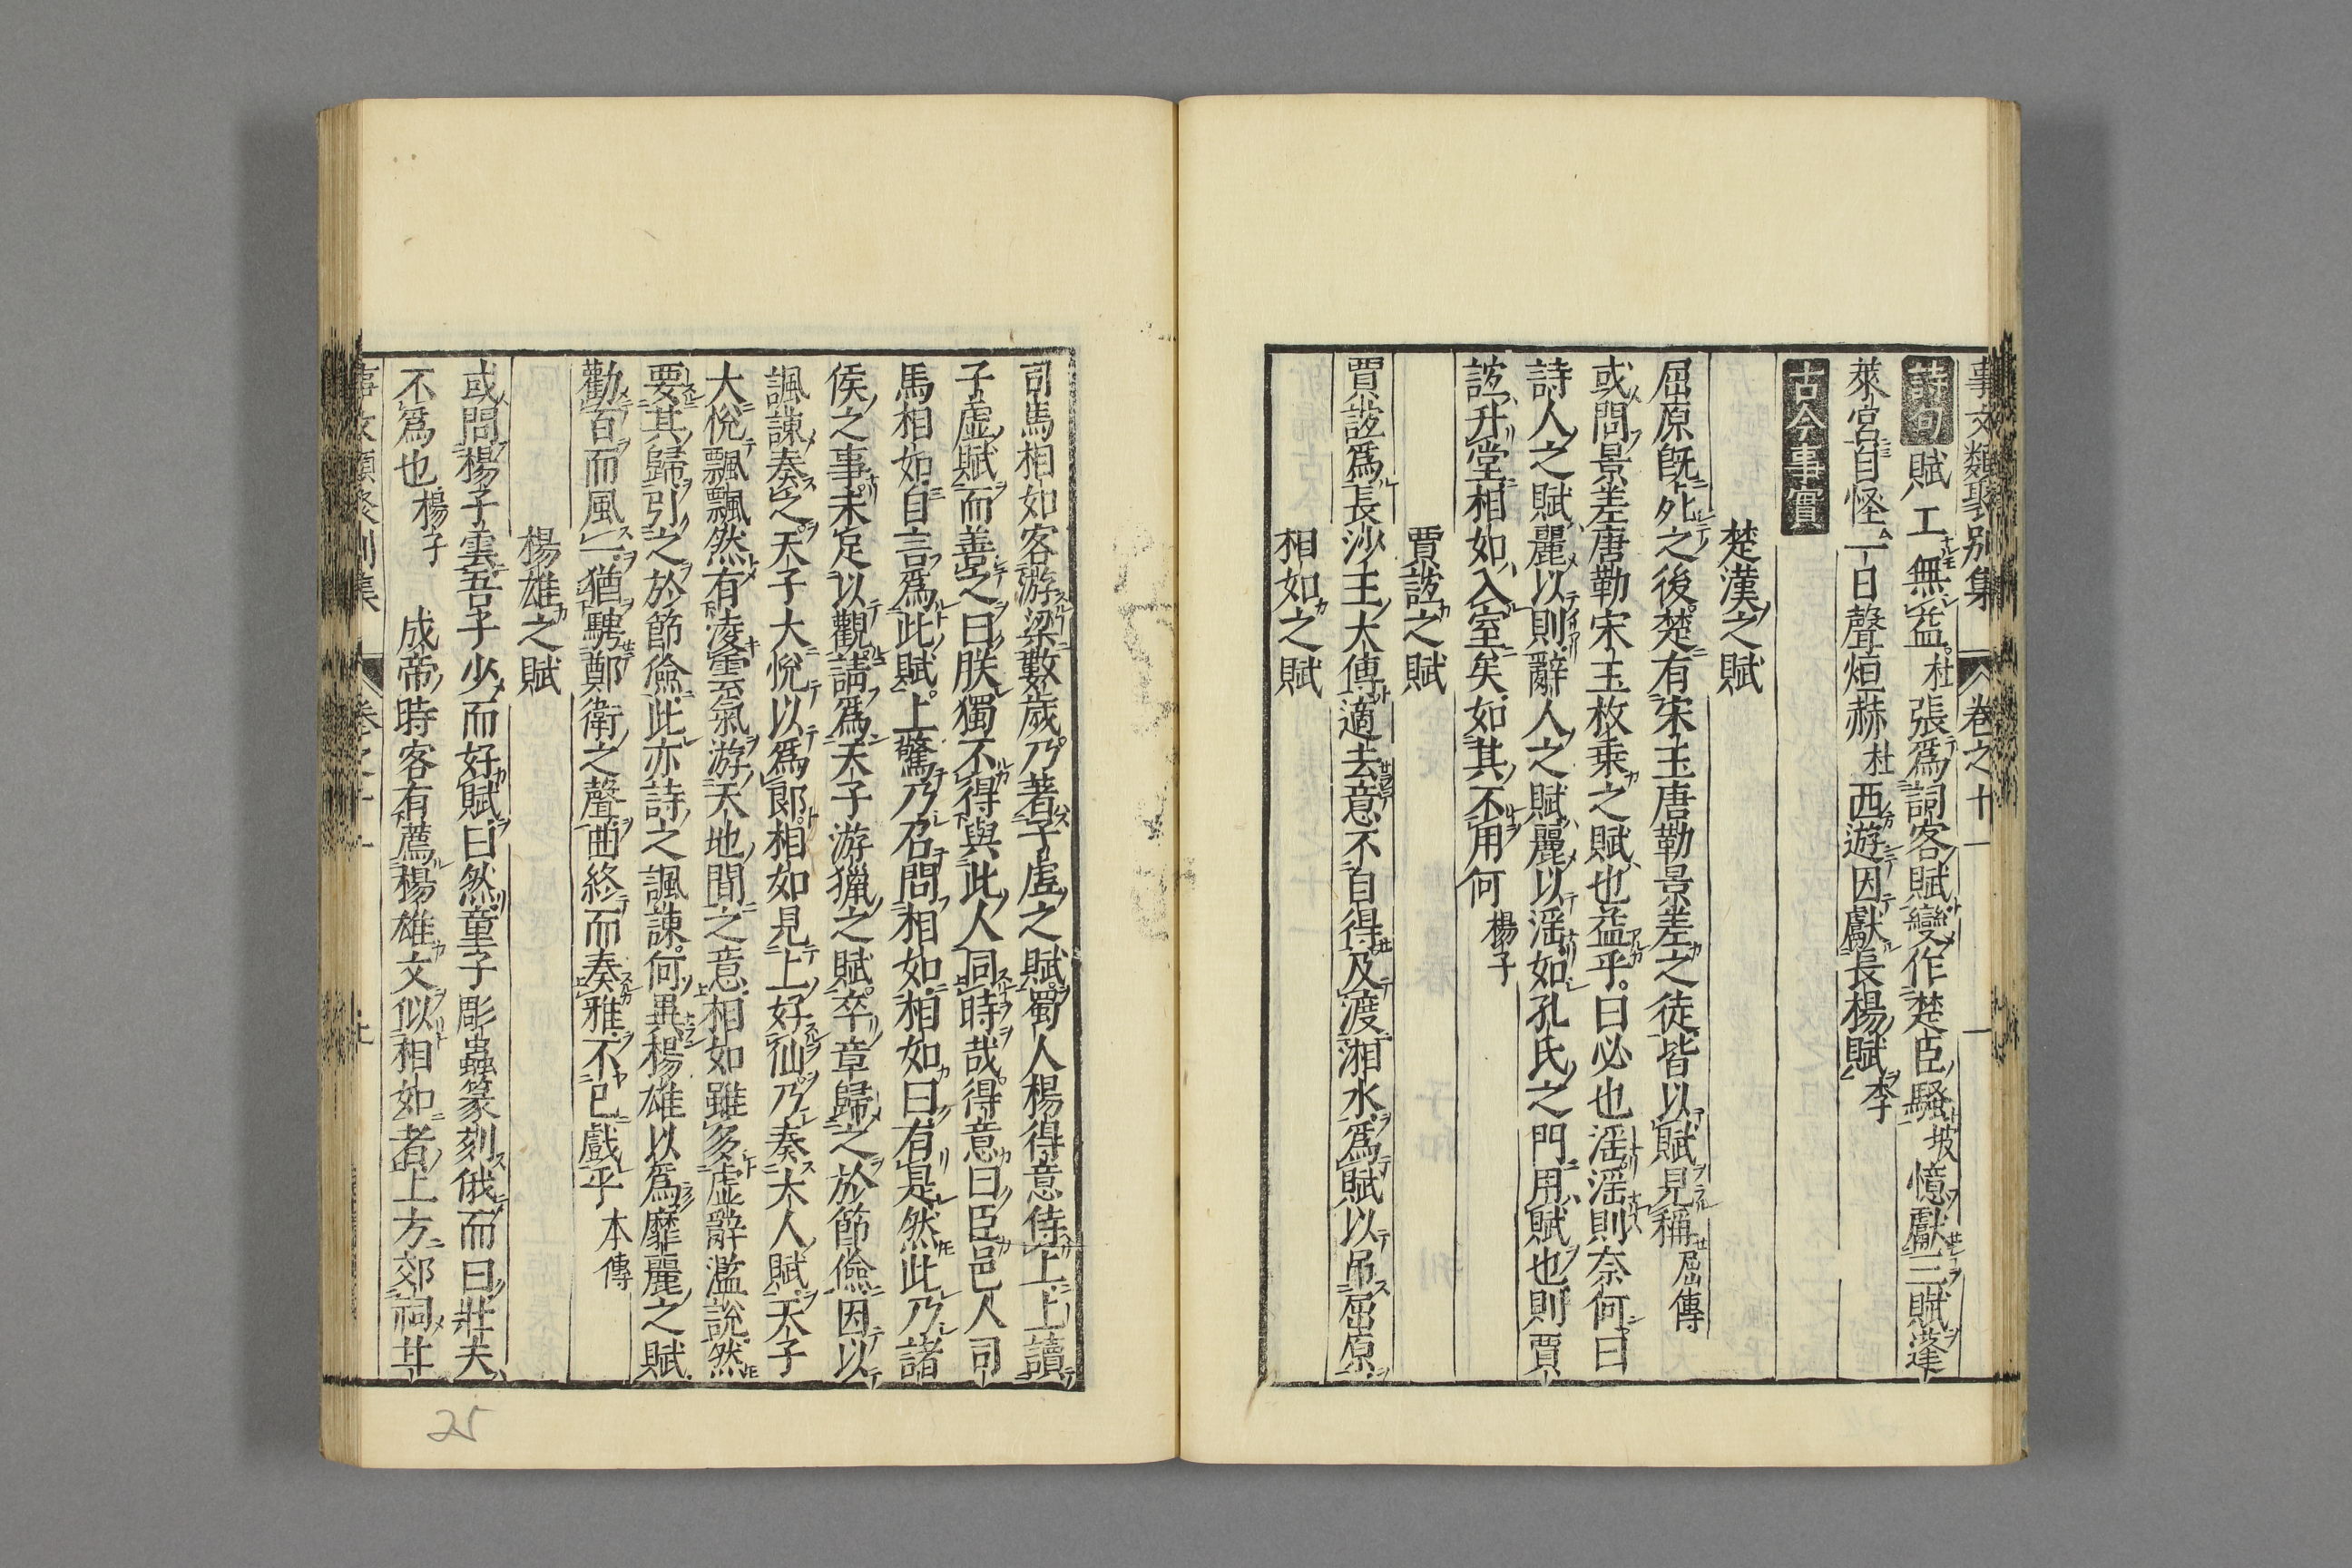 事文類聚別集 卷之十一
詩句 賦工無益杜 張爲詞客賦變作楚臣騷坡 憶獻三賦蓬
萊宮自怪一日聲烜赫杜 西遊因獻長楊賦李
古今事實
楚漢之賦
屈原旣死之後楚有宋玉唐勒景差之徒皆以賦見稱屈傳
或問景差唐勒宋玉枚乗之賦也益乎曰必也滛滛則奈何曰
詩人之賦麗以則辭人之賦麗以滛如孔氏之門用賦也則賈
誼升堂相如入室矣如其不用何 楊子
賈誼之賦
賈誼爲長沙王太傅適去意不自得及渡湘水爲賦以吊屈原
相如之賦
司馬相如客游梁數歲乃著子虛之賦蜀人楊得意侍上上讀
子虛賦而善之曰朕獨不得與此人同時哉得意曰臣邑人司
馬相如自言爲此賦上驚乃召問相如相如曰有是然此乃諸
侯之事未足以觀請爲天子游獵之賦卒章歸之於節儉因以
諷諫奏之天子大悅以爲郎相如見上好仙乃奏大人賦天子
大悅飄飄然有凌雲氣游天地間之意相如雖多虛辭濫說然
要其歸引之於節儉此亦詩之諷諫何異楊雄以爲靡麗之賦
勸百而風一猶騁鄭衛之聲曲終而奏雅不已戲乎 本傳
楊雄之賦
或問楊子雲吾子少而好賦曰然童子彫蟲篆刻俄而曰壯夫
不爲也楊子 成帝時客有薦楊雄文似相如者上方郊祠甘